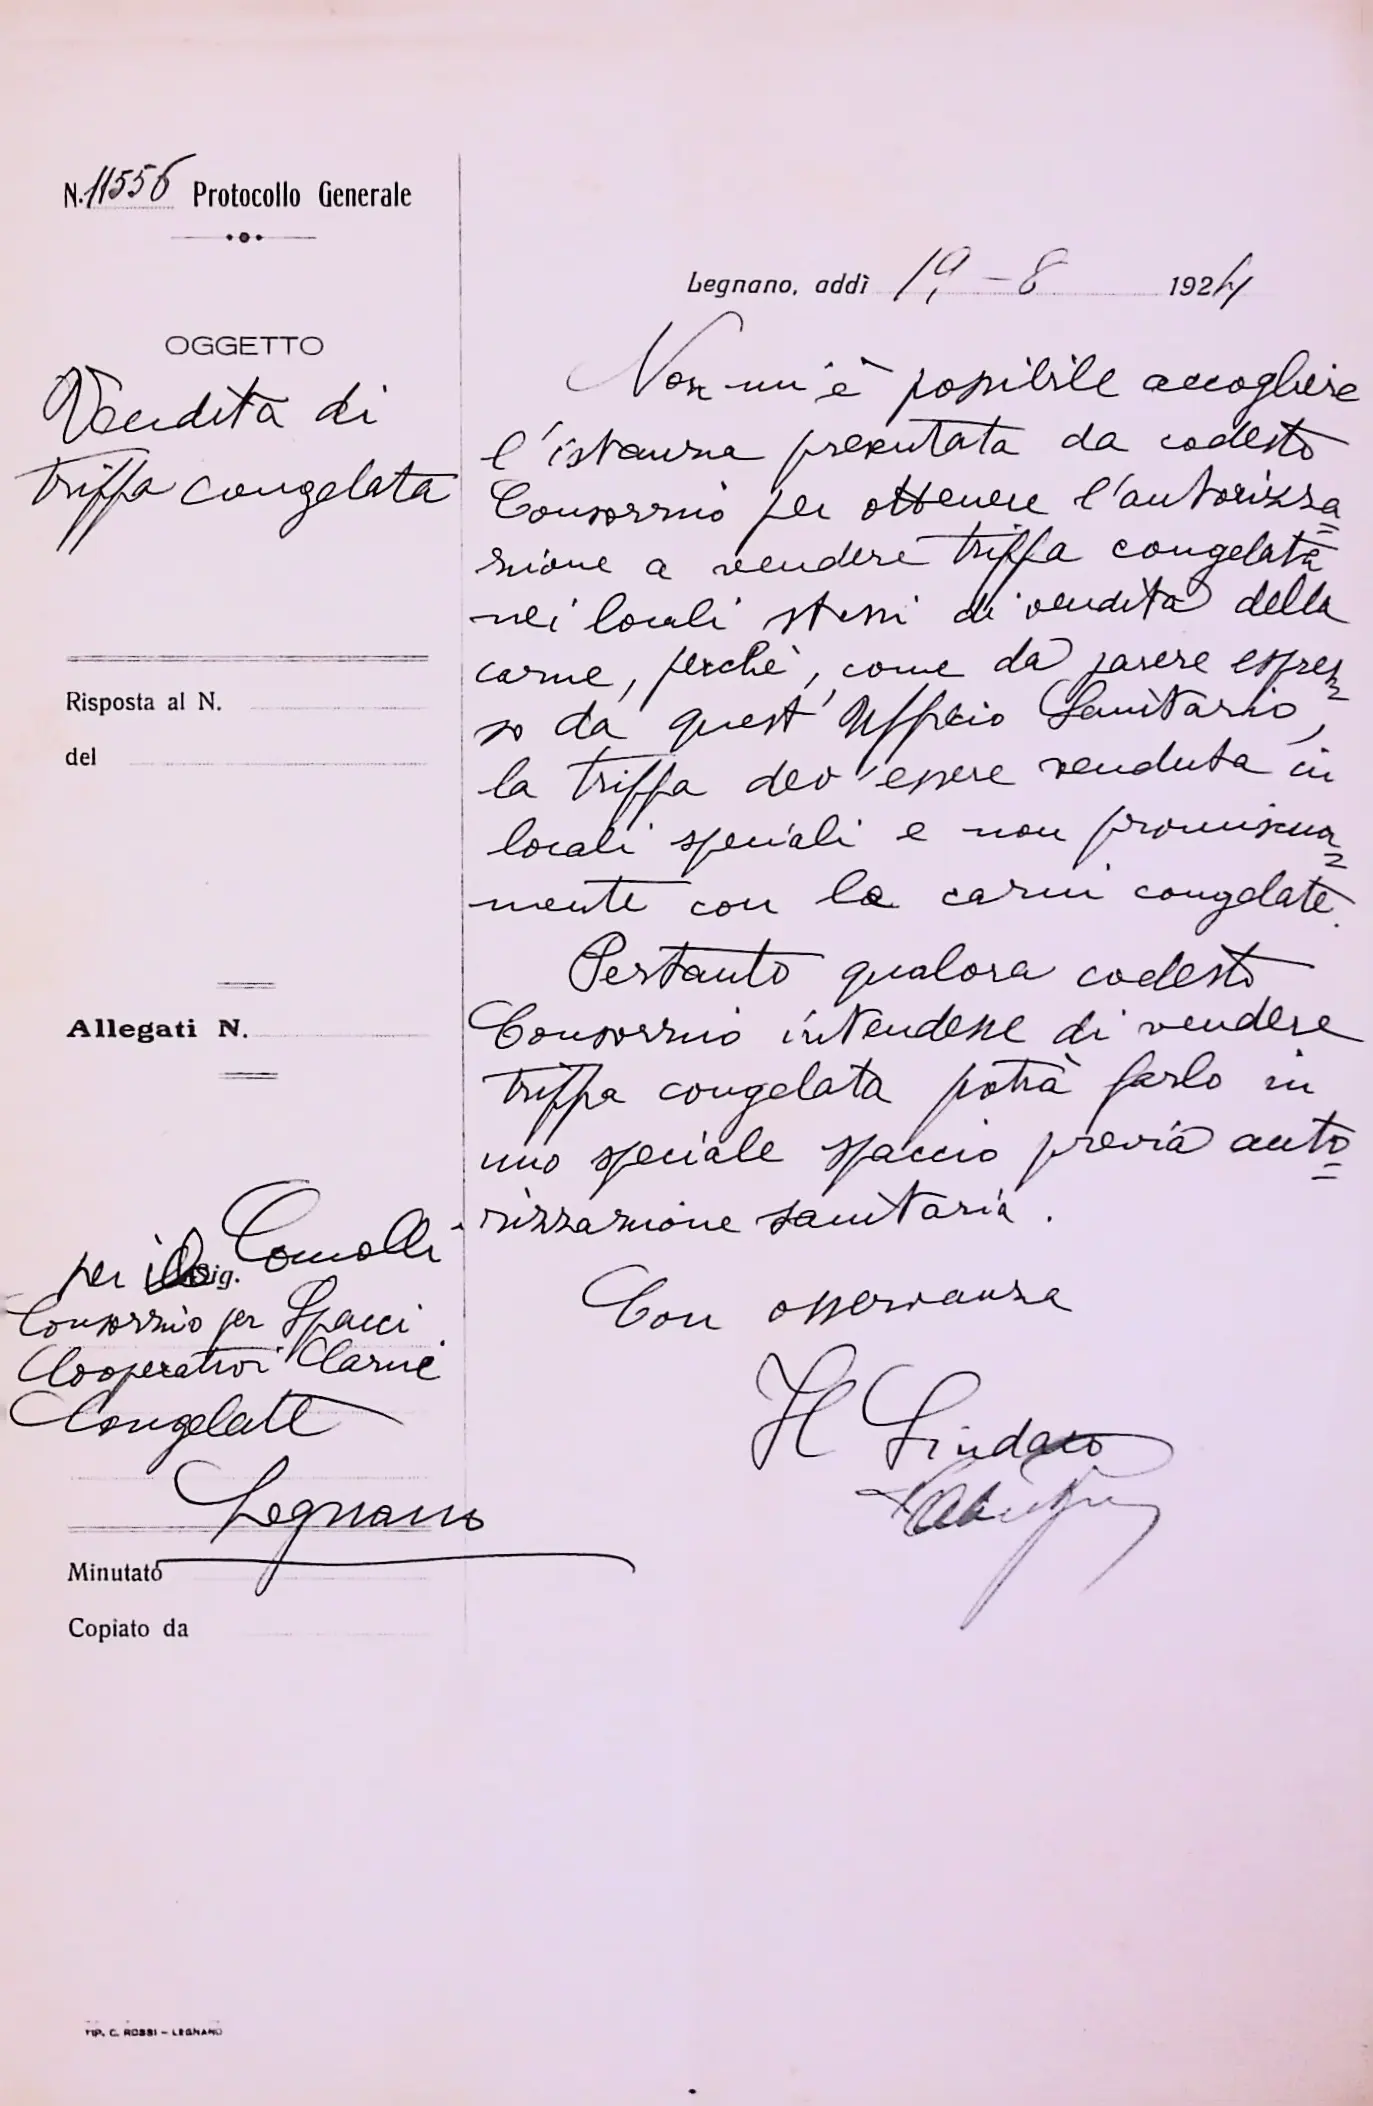 N. 11556 Protocollo Generale
OGGETTO
Vendita di
triffa congelata
Risposta al N.
del
Allegati N.
Sig. Comolli
per il
Consorzio per Spacci
Cooperativi Carni
Congelate
Legnano
Minutato
Copiato da
TIP. C. ROSSI - LEGNANO
Legnano, addì 19-8 1924
Non mi è possibile accogliere
l'istanza presentata da codesto
Consorzio per ottenere l'autorizza=
zione a vendere triffa congelata
nei locali stessi di vendita della
carne, perchè, come da parere espres=
so da quest'Ufficio Sanitario,
la triffa dev'essere venduta in
locali speciali e non promiscua=
mente con le carni congelate.
Pertanto qualora codesto
Consorzio intendesse di vendere
triffa congelata potrà farlo in
uno speciale spaccio previa auto=
rizzazione sanitaria.
Con osservanza
Il Sindaco